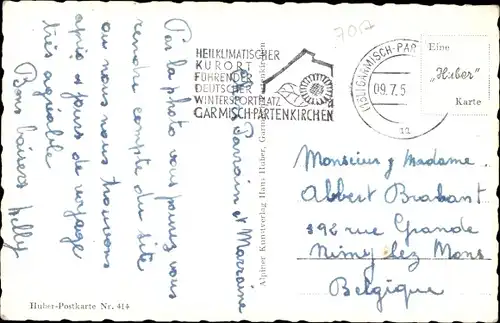 70A
HEILKLIMATISCHER
KURORT
FÜHRENDER
DEUTSCHER
WINTERSPORTPLATZ
GARMISCH-PARTENKIRCHEN
GARMISCH-PAR
09.7.5
Eine
„Huber"
Karte
Parrain et Marraine
Par la photo vous pouvez vous
rendre compte du site
où nous nous trouvons
après jours de voyage
très agréable
Bons baisers Nelly
Alpiner Kunstverlag Hans Huber, Garmisch-Partenkirchen
Monsieur & Madame
Albert Brabant
392 rue Grande
Nimy lez Mons
Belgique
Huber-Postkarte Nr. 414